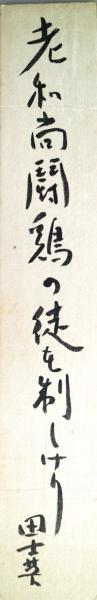 老和尚闘鶏の徒を制しけり
田士英